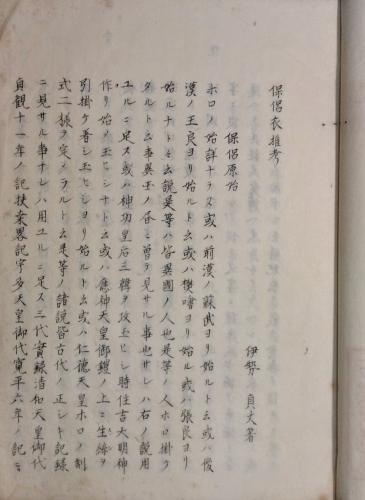 保侶衣推考
伊勢貞丈著
保侶原始
ホロノ始詳ナラス或ハ前漢ノ蘇武ヨリ始ルト云或ハ後
漢ノ王良ヨリ始ルト云或ハ樊噲ヨリ始ル或ハ張良ヨリ
始ルナトヽ云説是等ハ皆異國ノ人也是等ノ人ホロ掛ケ
タルト云事異王ノ書ニ曽テ見サル事也サレハ右ノ説用
ユルニ足ス或ハ神功皇后三韓ヲ攻玉ヒシ時住吉大明神
作リ始メ玉ヒシナト云或ハ應神天皇御鎧ノ上ニ生絹ヲ
引掛ケ着シ玉ヒシヨリ始ルト云或ハ仁德天皇ホロノ制
式二振ヲ定メラルト云是等ノ諸説皆古代ノ正シキ記録
ニ見サル事ナレハ用ユルニ足ス三代實録清和天皇御代
貞観十一年ノ記扶桒畧記宇多天皇御代寛平六年ノ記ニ